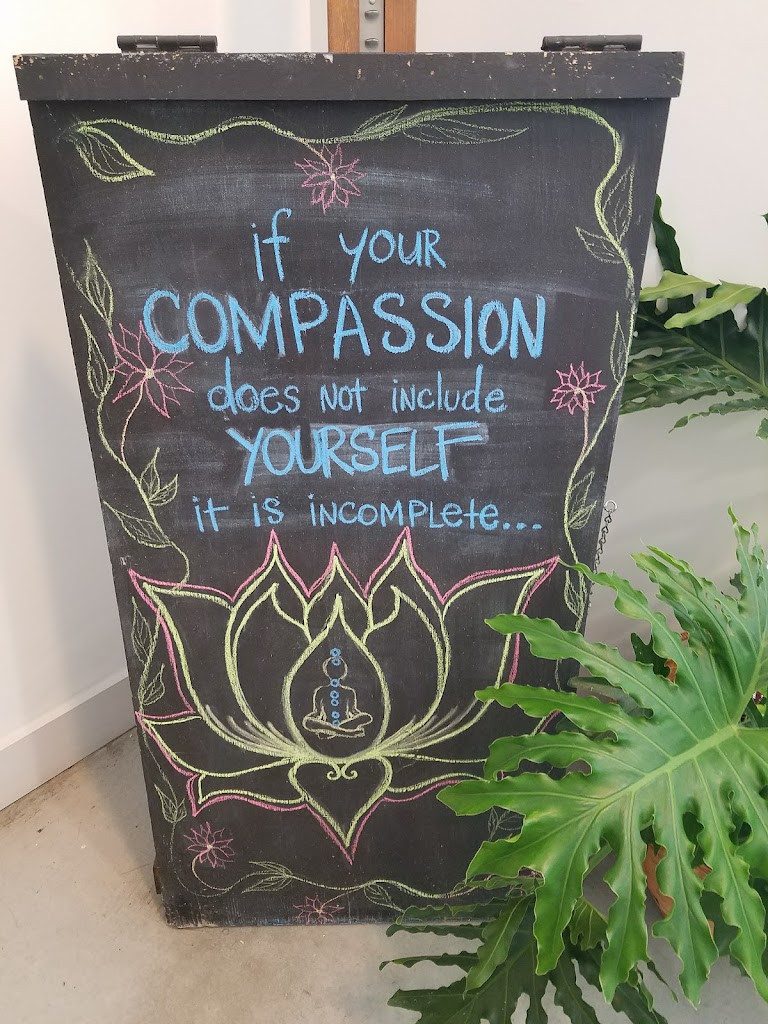 if YOUR
COMPASSION
does NOT include
YOURSELF
it is INCOMPLEte...